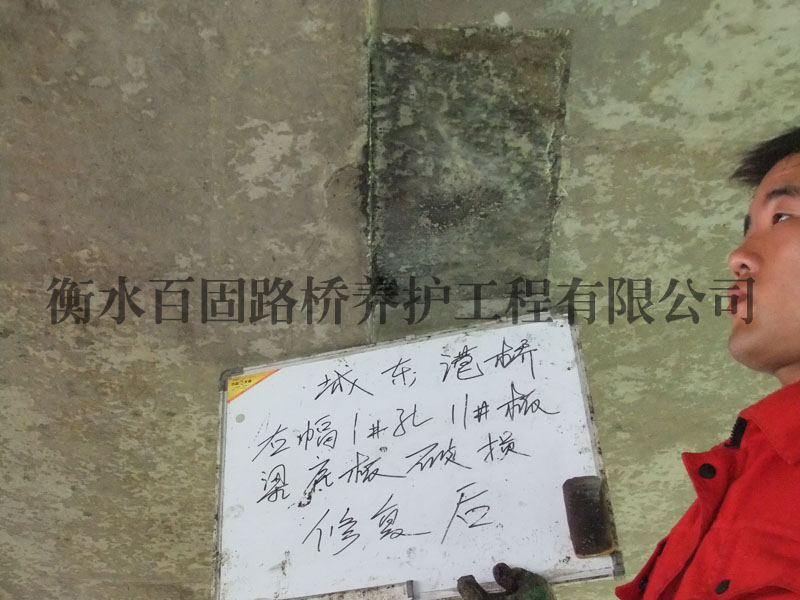 衡水百固路桥养护工程有限公司
城东港桥
左幅1#孔11#板
梁底板破损
修复后